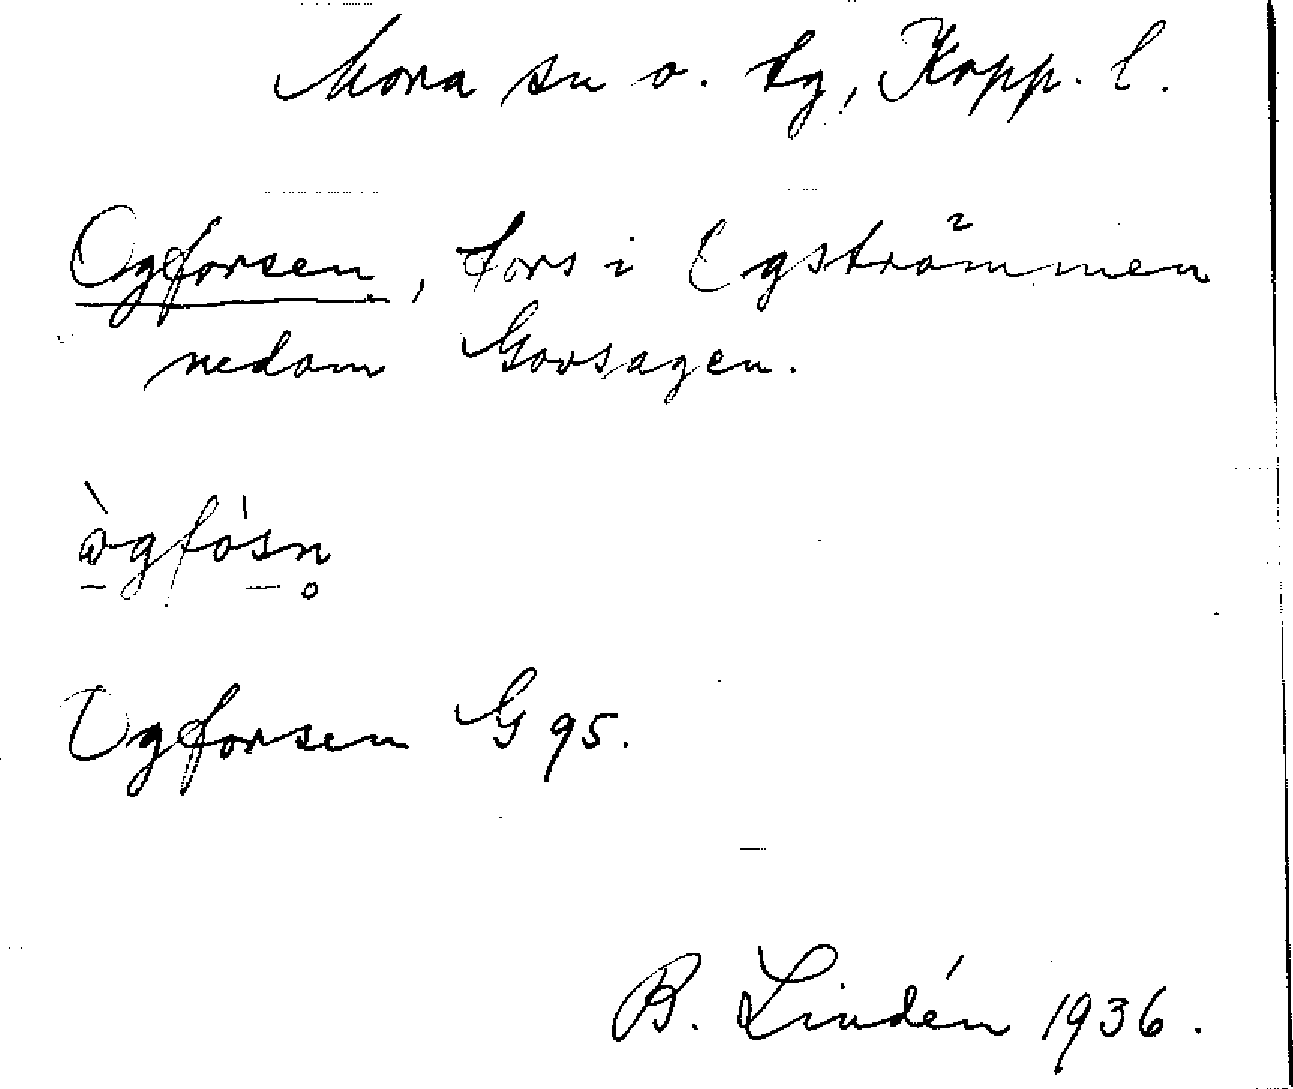 Mora sn o. tg, Kopp. l.
Ogforsen, fors i Ogströmmen
nedom Govsagen.
ògfósn
Ugforsen G 95.
B. Lindén 1936.